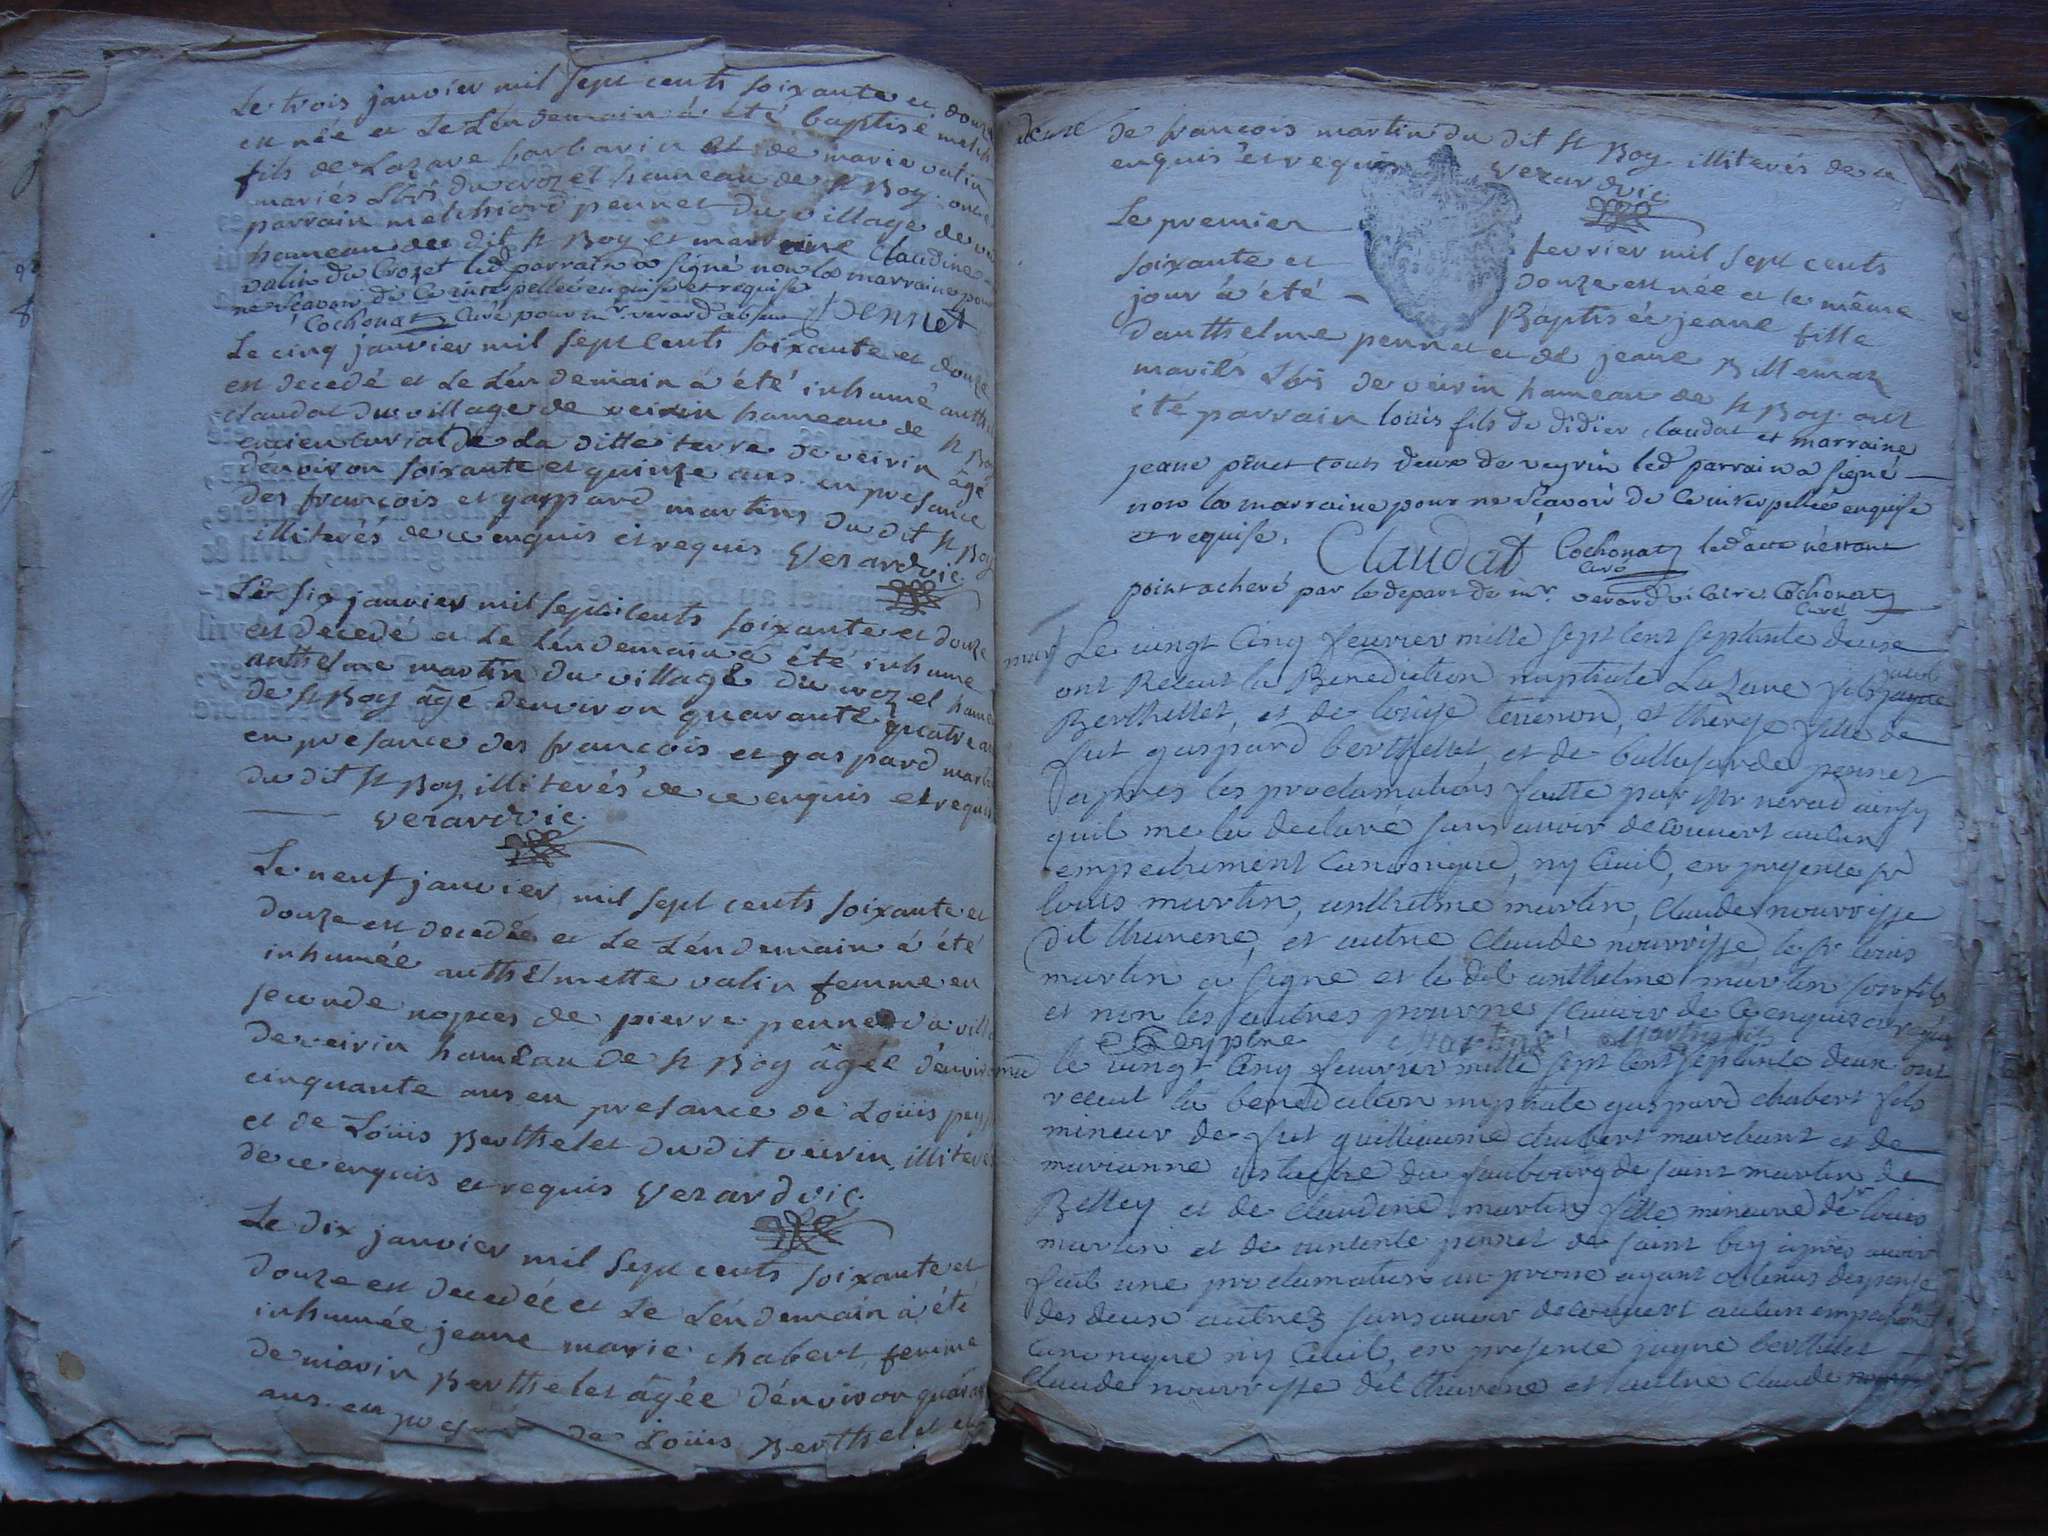 Le trois janvier mil sept cents soixante et douze
est née et Le Lendemain à été baptisé melch
fils de Lazare barbarin et de marie valin
mariés Lbrs du crozel hameau de st Boy. ont été
parrain melchiord pennet du village de vei
hameau du dit st Boy et marraine Claudine
valin du Crozet led parrain a signé non la marraine pour
ne sçavoir de ce interpellée enquise et requise
Cochonat Curé pour mr verard absent Pennet
Le cinq janvier mil sept cents soixante et douze
est decedé et Le Lendemain à été inhumé anth
claudat du village de veirin hameau de st Boy
encien curial de La ditte terre de veirin âgé
denviron soixante et quinze ans en presance
des françois et gaspard martins du dit st Boy
illiterés de ce enquis et requis Verard vic.
Le six janvier mil sept cents soixante et douze
est decedé et Le Lendemain à été inhumé
anthelme martin du village du crozel hame
de st Boy âgé denviron quarante quatre an
en presance des francois et gaspard martin
du dit st Boy illiterés de ce enquis et requis
Verard vic.
Le neuf janvier mil sept cents soixante et
douze est decedée et Le Lendemain à été
inhumée anthelmette valin femme en
seconde nopces de pierre pennet du vill
de veirin hameau de st Boy âgée denviron
cinquante ans en presance de Loüis pey
et de Loüis Berthelet du dit veirin illiterés
de ce enquis et requis Verard vic.
Le dix janvier mil sept cents soixante et
douze est decedée et Le Lendemain à été
inhumée jeane marie chabert femme
de marin Berthelet âgée dénviron quara
ans en presance de Loüis Berthelet et
de francois martin du dit st Boy illiterés de ce
enquis et requis Verard vic.
Le premier fevrier mil sept cents
soixante et douze est née et le même
jour à été Baptisée jeane fille
danthelme pennet et de jeane Billemaz
mariés Lbrs de veirin hameau de st Boy. ont
été parrain loüis fils de didier claudat et marraine
jeane penet touts deux de veyrin led parrain a signé
non la marraine pour ne sçavoir de ce interpellée enquise
et requise. Claudat Cochonat Curé led acte n'estant
point achevé par le depart de mr. verard vicaire. Cochonat Curé
Le vingt Cinq feuvrier mille sept Cent septante deuse
ont Receut la Benediction nuptiale Lazare fils jacob
Berthellet, et de loüise terrenon, et thèrese fille de
fut gaspard berthelet, et de baltasarde pennet
apres les proclamations faitte par Mr verad ainsy
quil me la declaré sans avoir decouvert aulcun
empechement Canonique, ny Ciuil, en presence sr
louis martin, anthelme martin, Claude nourrisse
dit thuvene, et autre Claude nourrisse, le sr louis
martin a signé et le dit anthelme martin son fils
et non les autres pour ne scauoir de Ce enquis et requis
Martin Martin fils
le vingt Cinq feuvrier mille sept Cent septante deux ont
receut la benediction nuptiale gaspard chabert fils
mineur de fut guilliaume chabert marchant et de
marianne du faubourg de saint martin de
Belley et de Claudine martin fille mineure de sr louis
martin et de pennet de saint boy apres auoir
fait une proclamation au prone ayant obtenus dispense
des deux autres sans auoir decouuert aulcun empechemt
Canonique ny Ciuil, en presence jaque berthelet
Claude nourrisse dit thuvene et autre Claude